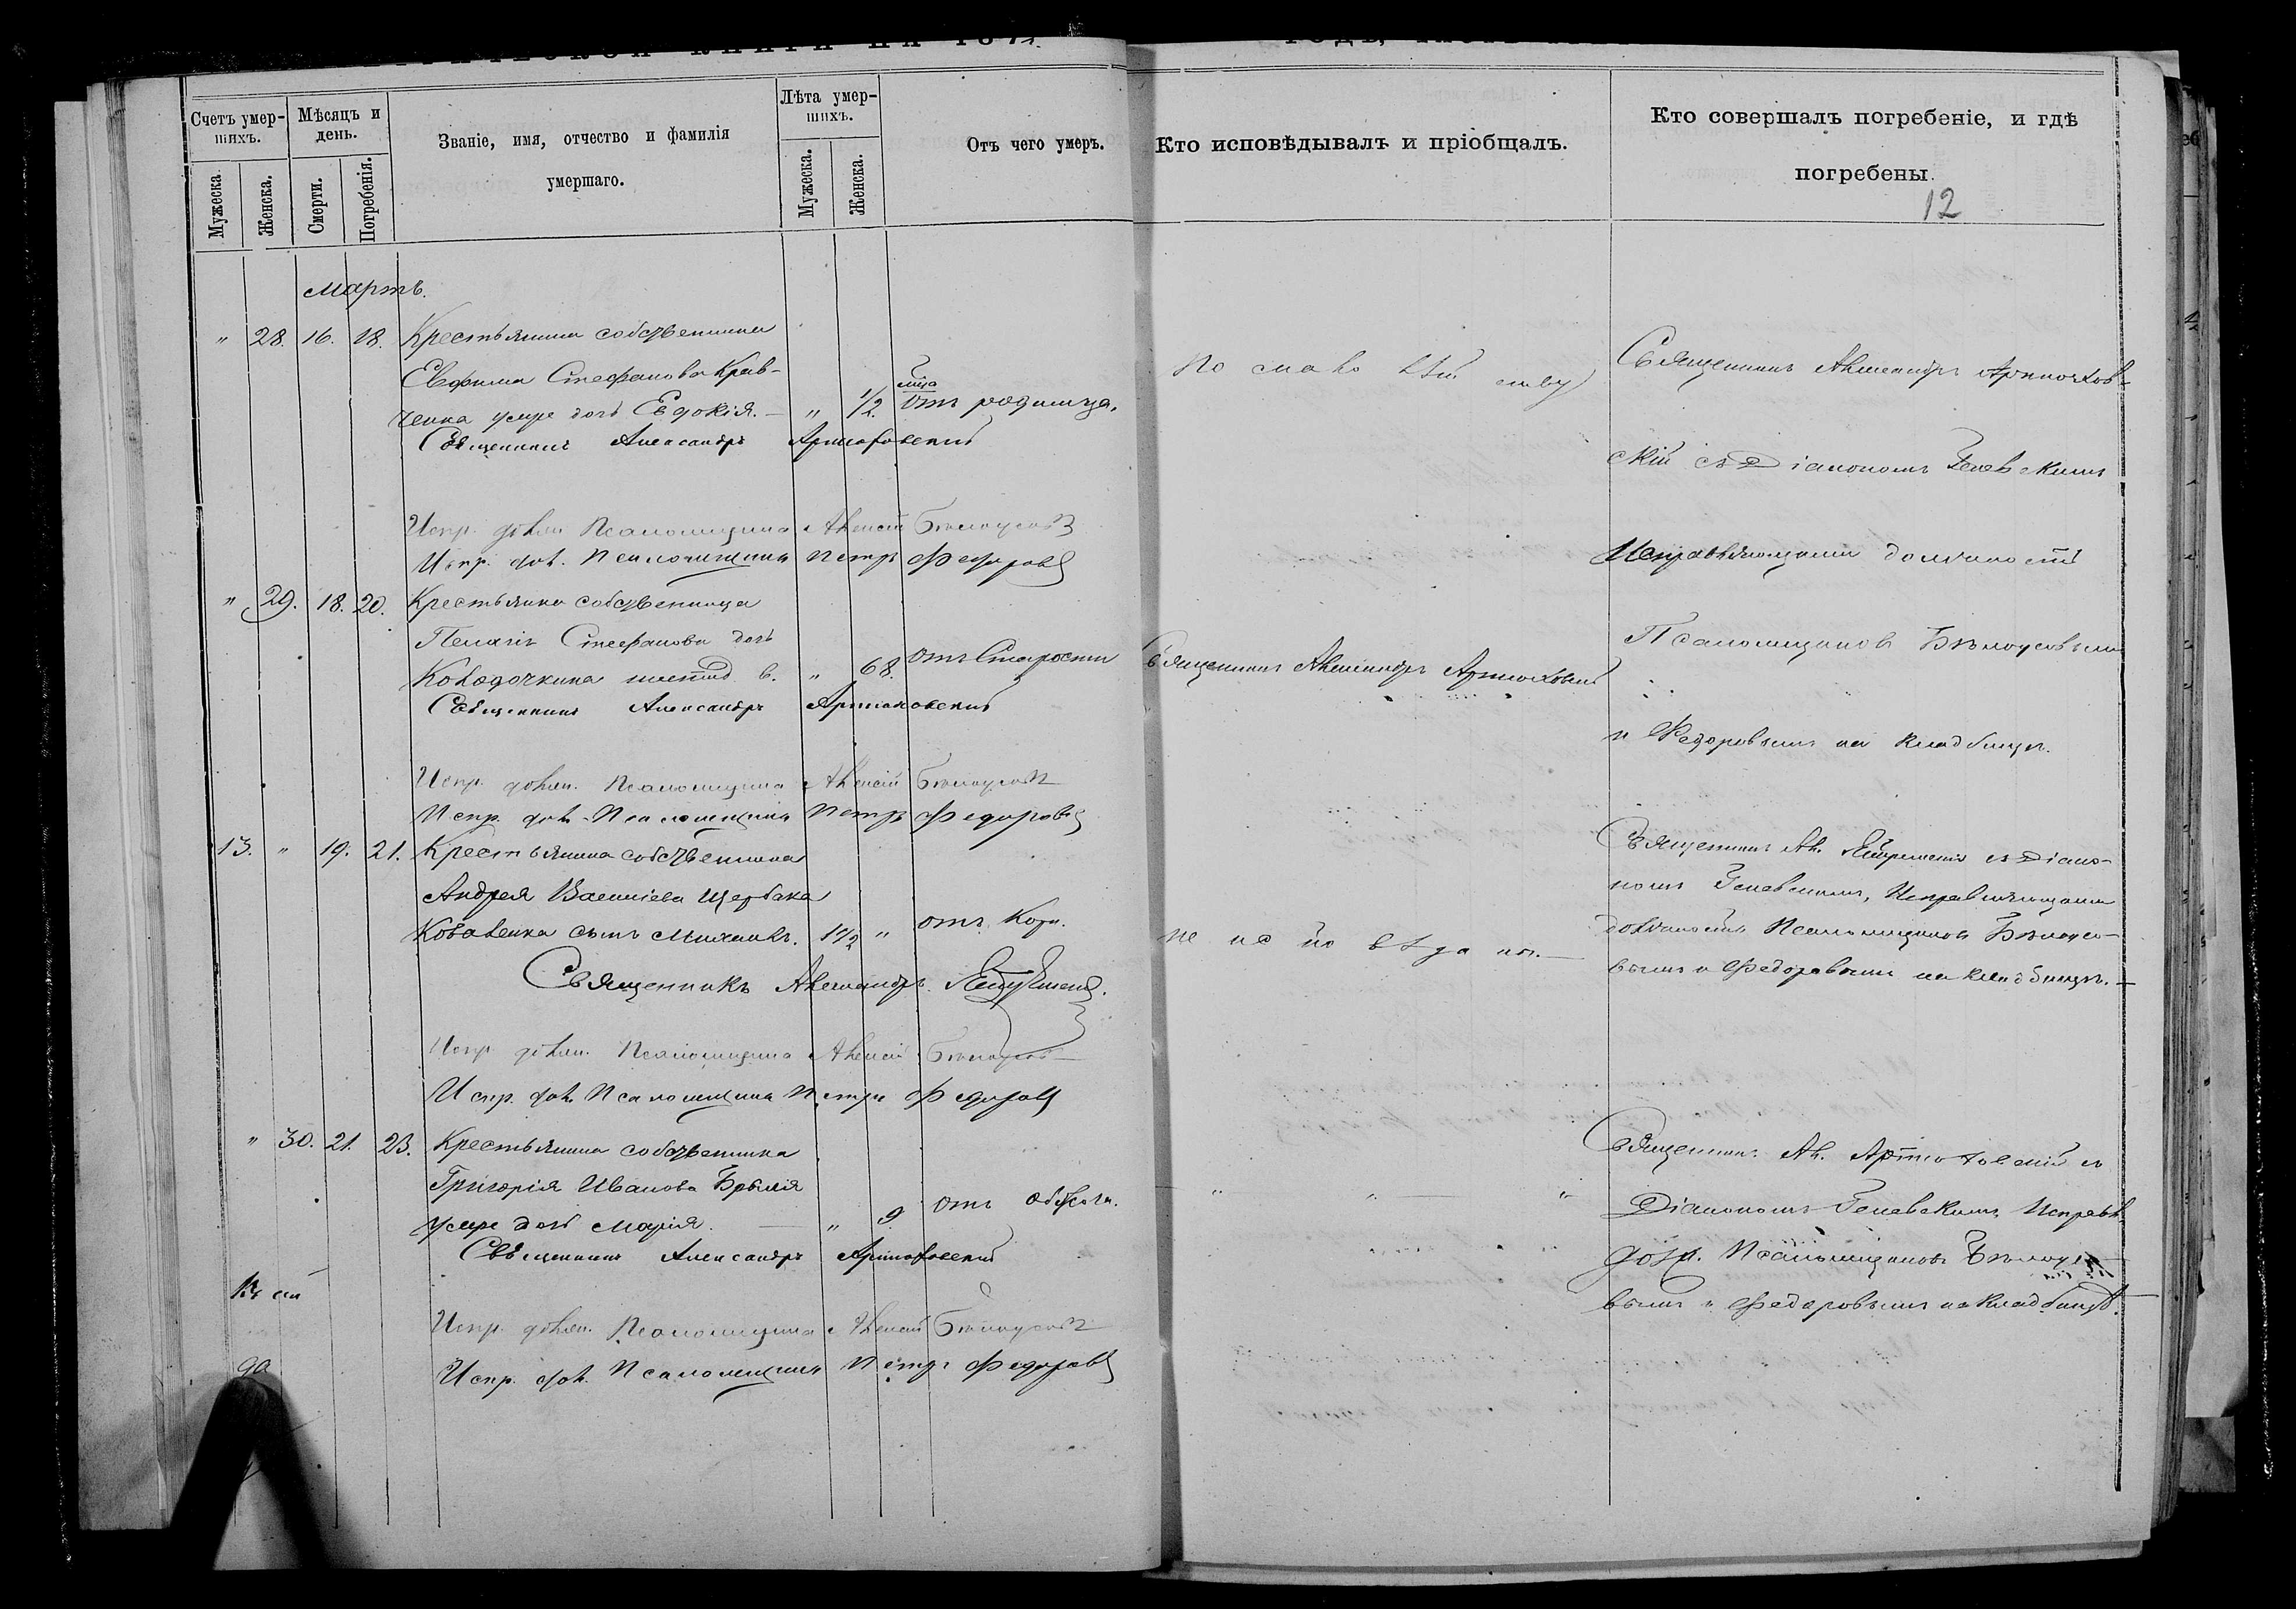 Счетъ умер-
шихъ.
Мужеска.
Женска.
Мѣсяцъ и
день.
Смерти.
Погребенія.
Званіе, имя, отчество и фамилія
умершаго.
Лѣта умер-
шихъ.
Мужеска.
Женска.
Отъ чего умеръ.
Кто исповѣдывалъ и пріобщалъ.
Кто совершалъ погребеніе, и гдѣ
погребены.
12
Мартъ.
" 28. 16. 18. Крестьянина собственника
Евфима Стефанова Крав-
ченка умре дочь Евдокія. " 1/2. отъ родимца.
Священникъ Александръ Артюховскій
Испр. долж. Псаломщика Алексѣй Бѣлоусовъ
Испр. дол. Псаломщика Петръ Федоровъ
По малолѣтству
Священникъ Александръ Артюхов-
скій съ Діакономъ Геневскимъ
Исправляющими должность
Псаломщиковъ Бѣлоусовымъ
и Федоровымъ на кладбищѣ.
" 29. 18. 20. Крестьянка собственница
Пелагія Стефанова дочь
Колодочкина " 68. отъ Старости
Священникъ Александръ Артюховскій
Священникъ Александръ Артюховскій
Испр. должн. Псаломщика Алексѣй Бѣлоусовъ
Испр. дол. Псаломщика Петръ Федоровъ
13. " 19. 21. Крестьянина собственника
Андрея Василіева Щербака
Коваленка сынъ Михаилъ. 1 1/2 " отъ Кори.
Священникъ Александръ
Испр. должн. Псаломщика Алексѣй Бѣлоусовъ
Испр. дол. Псаломщика Петръ Федоровъ
не исповѣданъ.
Священникъ Ал. съ Діако-
номъ Геневскимъ, Исправляющими
должность Псаломщиковъ Бѣлоусо-
вымъ и Федоровымъ на кладбищѣ.
" 30. 21. 23. Крестьянина собственника
Григорія Иванова
умре дочь Марія. " 9. отъ
Священникъ Александръ Артюховскій
Испр. должн. Псаломщика Алексѣй Бѣлоусовъ
Испр. дол. Псаломщика Петръ Федоровъ
" " "
Священникъ Ал. Артюховскій съ
Діакономъ Геневскимъ, Исправл.
долж. Псаломщиковъ Бѣлоусо-
вымъ и Федоровымъ на кладбищѣ.